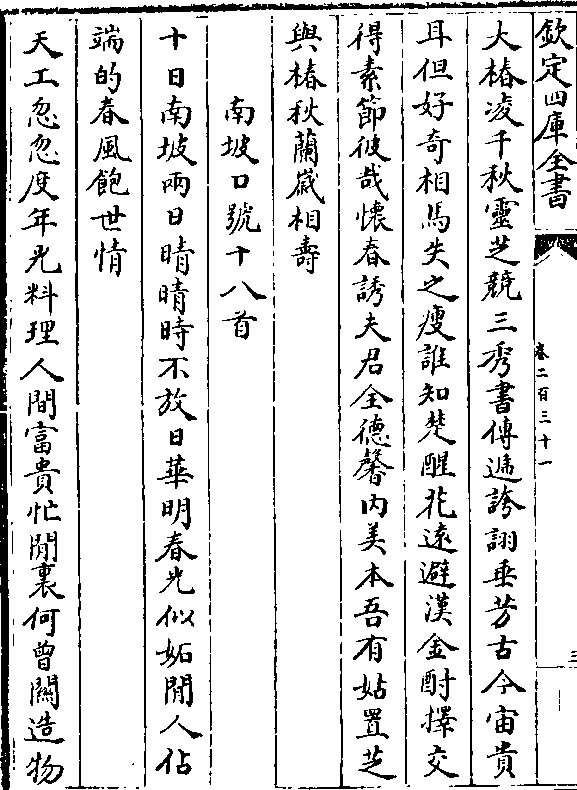 欽定四庫全書
卷二百三十一
三
大椿凌千秋靈芝競三秀書傳遞誇詡垂芳古今宙貴
耳但好奇相馬失之瘦誰知楚醒花遠避漢金酎擇交
得素節彼哉懷春誘夫君全德馨内美本吾有姑置芝
與椿秋蘭嵗相壽
南坡口號十八首
十日南坡兩日晴晴時不放日華明春光似妬閒人佔
端的春風飽世情
天工忽忽度年光料理人間富貴忙閒裏何曾闗造物